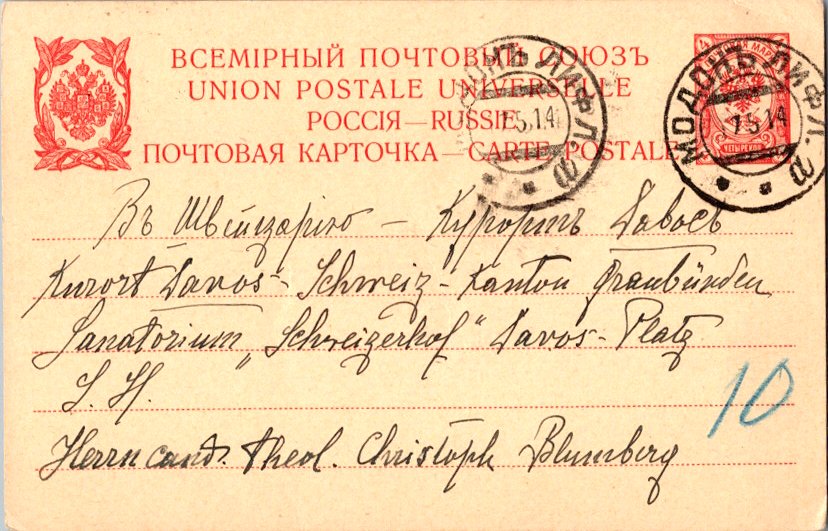 ВСЕМІРНЫЙ ПОЧТОВЫЙ СОЮЗЪ
UNION POSTALE UNIVERSELLE
РОССІЯ—RUSSIE
ПОЧТОВАЯ КАРТОЧКА—CARTE POSTALE
ЛИФЛ.
7.5.14
МОДОНЪ ЛИФЛ.
7.5.14
Въ Швейцарію — Курортъ Давосъ
Kurort Davos- Schweiz- Kanton Graubünden
Sanatorium „Schweizerhof“ Davos- Platz
S. H.
10
Herrn cand. theol. Christoph Blumberg